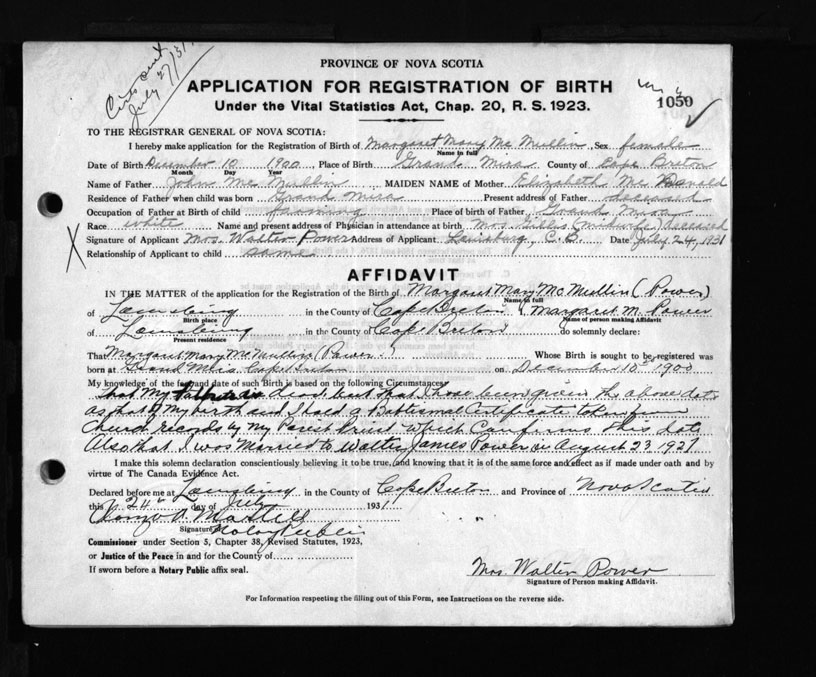 Certs sent
July 27/31
PROVINCE OF NOVA SCOTIA
APPLICATION FOR REGISTRATION OF BIRTH
Under the Vital Statistics Act, Chap. 20, R. S. 1923.
1050
TO THE REGISTRAR GENERAL OF NOVA SCOTIA:
I hereby make application for the Registration of Birth of Margaret Mary Mc Mullin, Sex female
Name in full
Date of Birth December 10 1900, Place of Birth Grand Mira County of Cape Breton
Month Day Year
Name of Father John Mc Mullin MAIDEN NAME of Mother Elizabeth Mc Donald
Residence of Father when child was born Grand Mira Present address of Father deceased
Occupation of Father at Birth of child farming Place of birth of Father Grand Mira
Race white Name and present address of Physician in attendance at birth Mrs. Gillis (midwife) deceased
X Signature of Applicant Mrs. Walter Power Address of Applicant Louisburg, C.B. Date July 24, 1931
Relationship of Applicant to child same
AFFIDAVIT
IN THE MATTER of the application for the Registration of the Birth of Margaret Mary McMullin (Power)
Name in full
of Louisburg in the County of Cape Breton I, Margaret M. Power
Birth place Name of person making Affidavit
of Louisburg in the County of Cape Breton do solemnly declare:
Present residence
That Margaret Mary McMullin (Power) Whose Birth is sought to be registered was
born at Grand Mira Cape Breton on December 10th 1900
My knowledge of the fact and date of such Birth is based on the following Circumstances
That My dead, but that I have been given the above date
as that of my birth and I hold a Baptismal Certificate taken from
Church records by my Parish Priest which Confirms this date
Also that I was Married to Walter James Power on August 23 1921
I make this solemn declaration conscientiously believing it to be true, and knowing that it is of the same force and effect as if made under oath and by
virtue of The Canada Evidence Act.
Declared before me at Louisburg in the County of Cape Breton and Province of Nova Scotia
this 24th day of July 1931
Signature Notary Public
Commissioner under Section 3, Chapter 38, Revised Statutes, 1923,
or Justice of the Peace in and for the County of
If sworn before a Notary Public affix seal.
Mrs. Walter Power
Signature of Person making Affidavit.
For Information respecting the filling out of this Form, see Instructions on the reverse side.